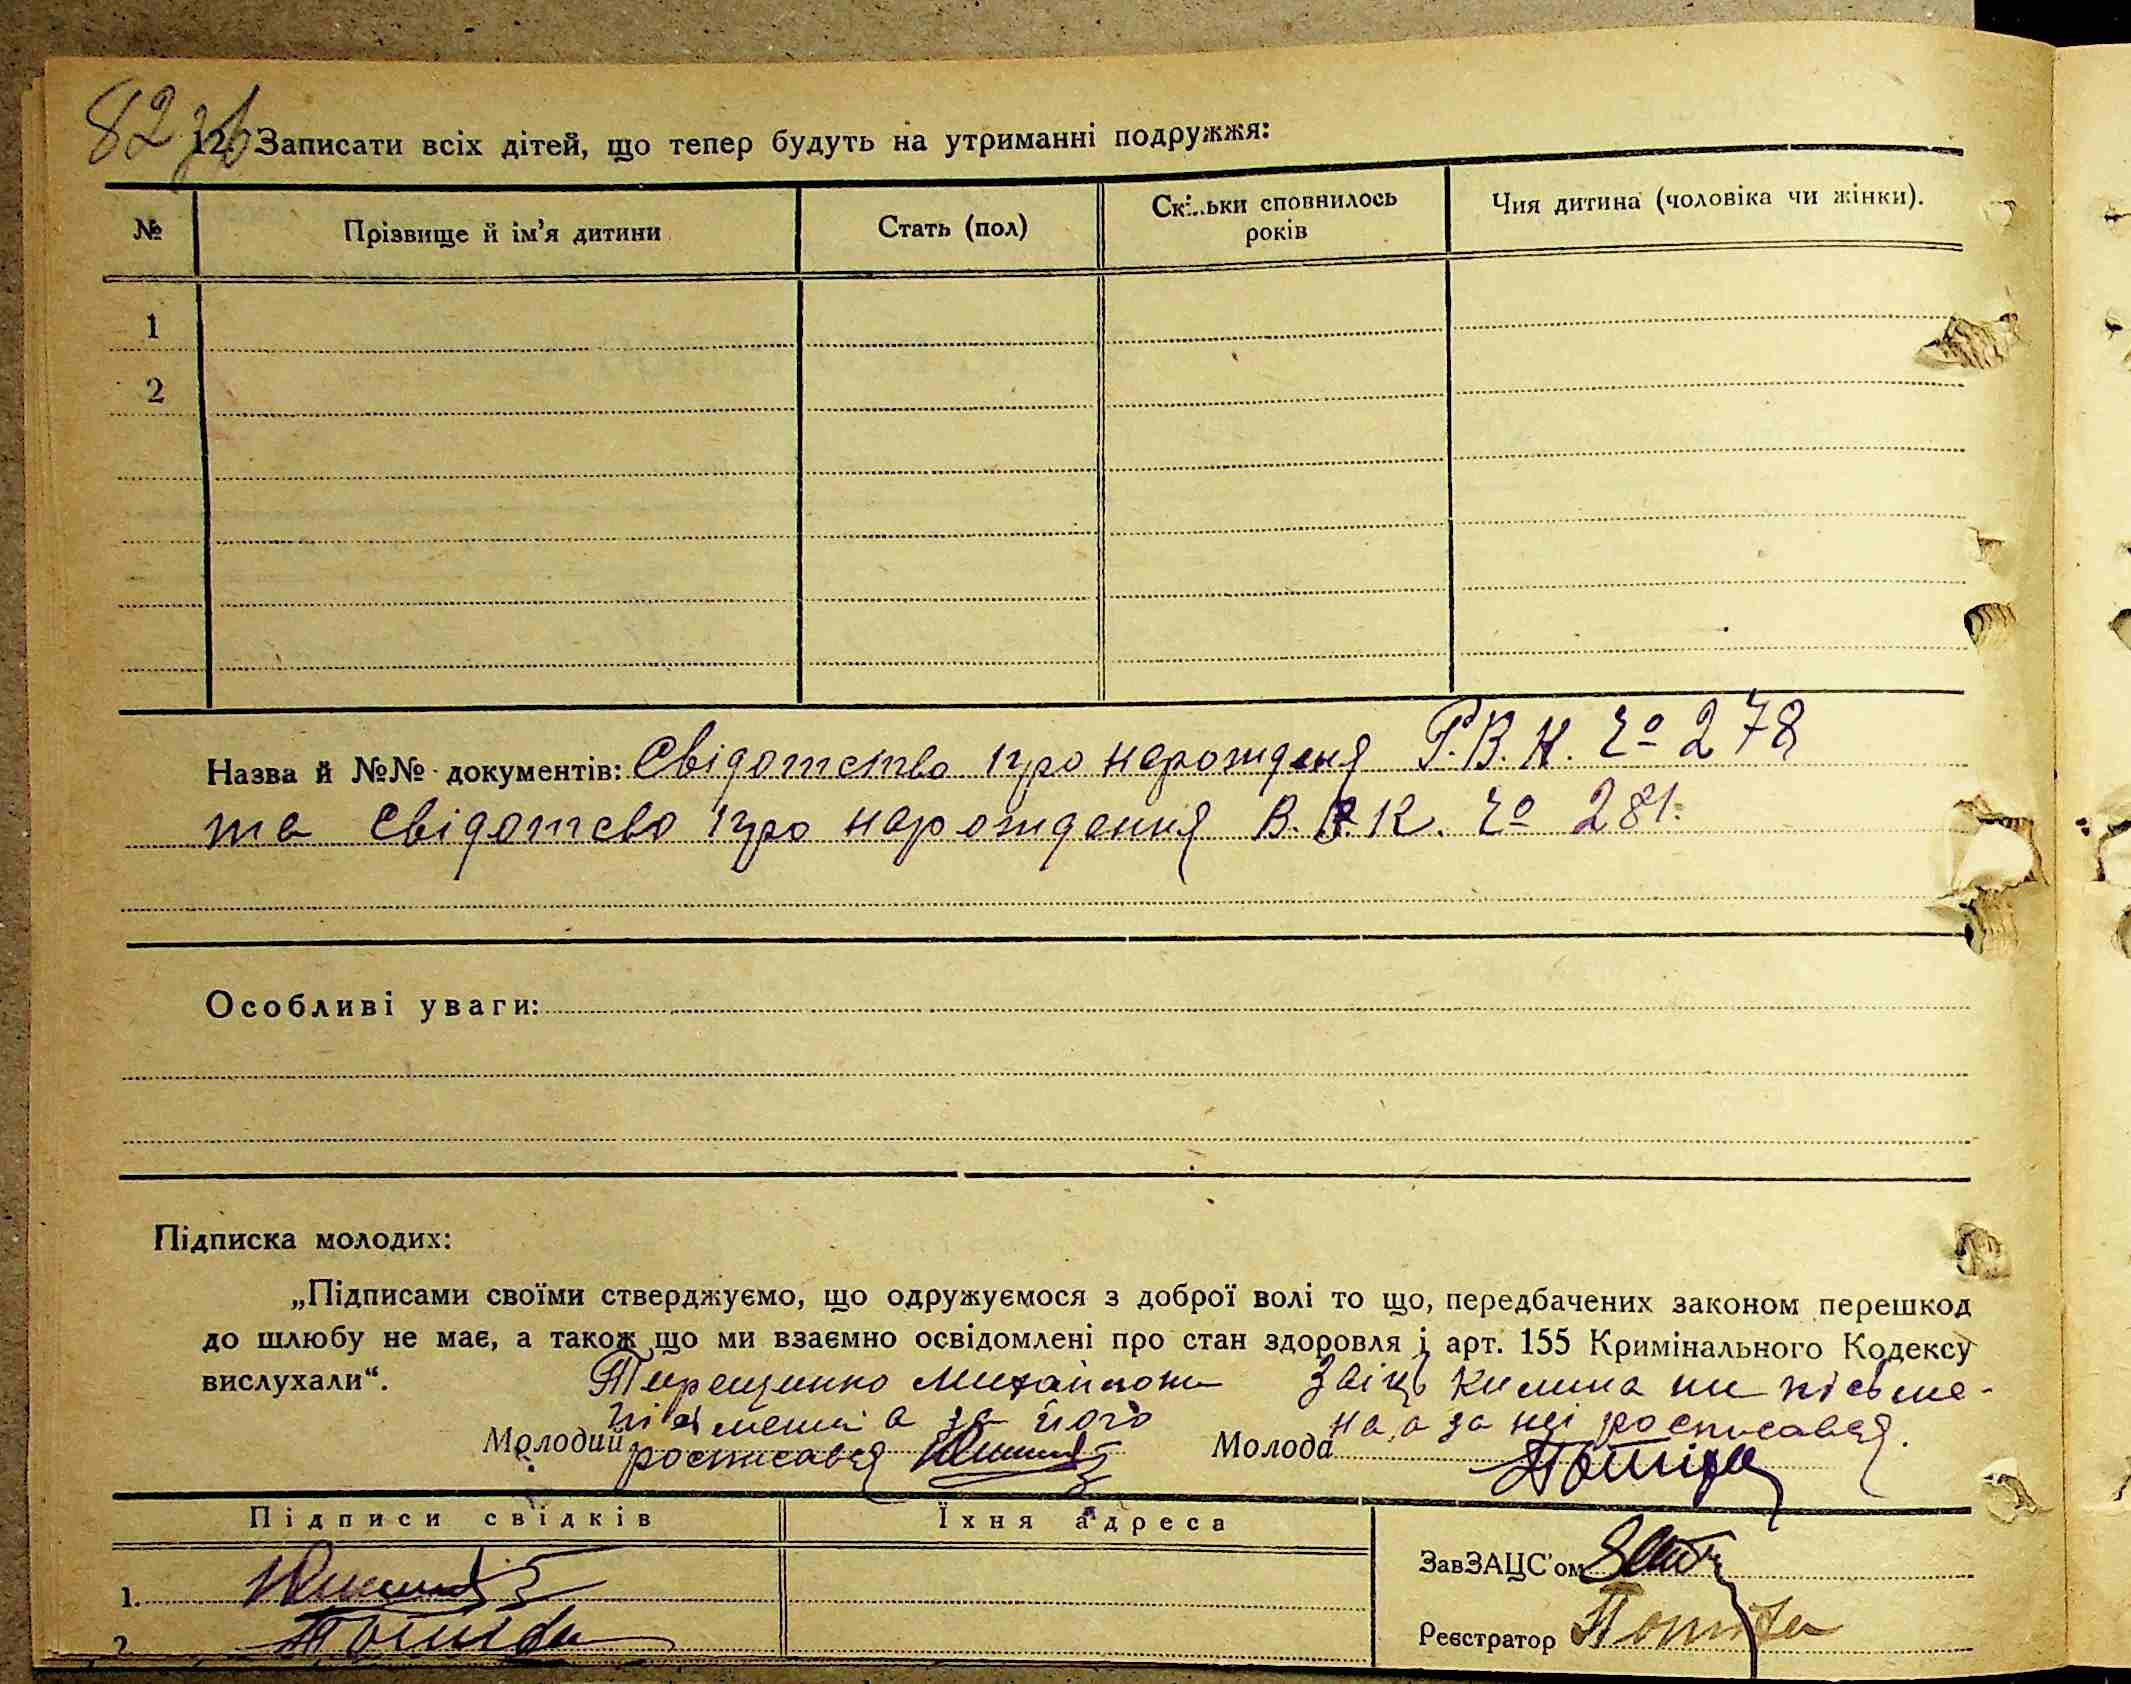 82 зв
12. Записати всіх дітей, що тепер будуть на утриманні подружжя:
№ Прізвище й ім'я дитини Стать (пол) Скі..ьки сповнилось років Чия дитина (чоловіка чи жінки).
1
2
Назва й №№ документів: Свідотство про нарождення Р.В.К. № 278
та свідотсво про нарождення В. К. № 281.
Особливі уваги:
Підписка молодих:
„Підписами своїми стверджуємо, що одружуємося з доброї волі то що, передбачених законом перешкод
до шлюбу не має, а також що ми взаємно освідомлені про стан здоровля і арт. 155 Кримінального Кодексу
вислухали“.
Терещенко Михайло ни
письмений а за його
Молодий росписався
Заіць Килина ни письме-
на, а за неї росписався.
Молода
Підписи свідків Їхня адреса
1.
2
ЗавЗАЦС'ом
Реєстратор